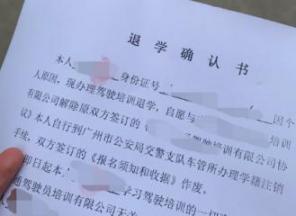 退学确认书
本人 身份证号 因个
人原因，现办理驾驶培训退学，自愿与 培训
有限公司解除原双方签订的《 驾驶培训有限公司协
议》本人自行到广州市公安局交警支队车管所办理学籍注销
手续，双方签订的《报名须知和收据》作废。
即日起本 学习驾驶培训的一切
驾驶员培训有限公司无